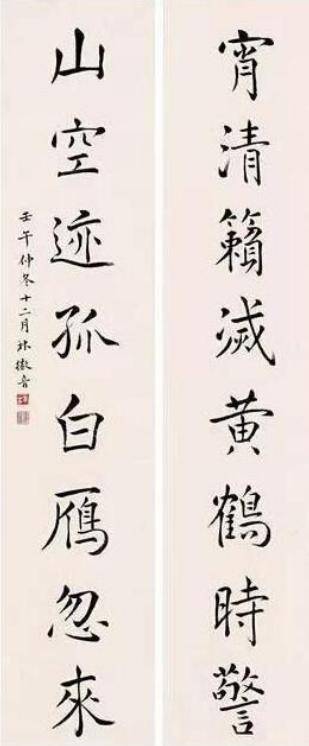 宵清籟滅黄鶴時警
山空迹孤白鴈忽來
壬午仲冬十二月林徽音